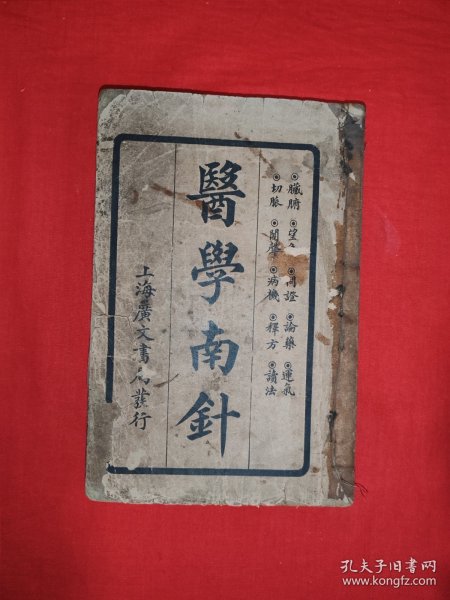 ◉臟腑◉望◉問證◉論藥◉運氣
◉切脈◉聞聲◉病機◉釋方◉讀法
醫學南針
上海廣文書局發行
孔夫子旧书网
www.kongfz.com